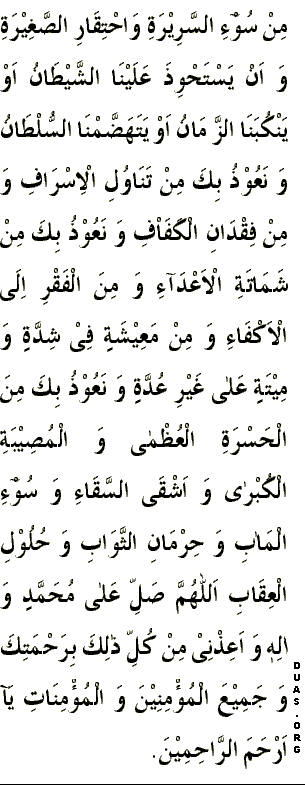 مِنْ سُوْٓءِ السَّرِيْرَةِ وَاحْتِقَارِ الصَّغِيْرَةِ
وَ اَنْ يَسْتَحْوِذَ عَلَيْنَا الشَّيْطَانُ اَوْ
يَنْكُبَنَا الزَّمَانُ اَوْ يَتَهَضَّمْنَا السُّلْطَانُ
وَ نَعُوْذُ بِكَ مِنْ تَنَاوُلِ الْاِسْرَافِ وَ
مِنْ فِقْدَانِ الْكَفَافِ وَ نَعُوْذُ بِكَ مِنْ
شَمَاتَةِ الْاَعْدَآءِ وَ مِنَ الْفَقْرِ اِلَى
الْاَكْفَاءِ وَ مِنْ مَعِيْشَةٍ فِىْ شِدَّةٍ وَ
مِيْتَةٍ عَلٰى غَيْرِ عُدَّةٍ وَ نَعُوْذُ بِكَ مِنَ
الْحَسْرَةِ الْعُظْمٰى وَ الْمُصِيْبَةِ
الْكُبْرٰى وَ اَشْقَى السَّقَاءِ وَ سُوْٓءِ
الْمَاٰبِ وَ حِرْمَانِ الثَّوَابِ وَ حُلُوْلِ
الْعِقَابِ اَللّٰهُمَّ صَلِّ عَلٰى مُحَمَّدٍ وَ
اٰلِهٖ وَ اَعِذْنِىْ مِنْ كُلِّ ذٰلِكَ بِرَحْمَتِكَ
وَ جَمِيْعَ الْمُؤْمِنِيْنَ وَ الْمُؤْمِنَاتِ يَآ
اَرْحَمَ الرَّاحِمِيْنَ.
DUAS.ORG